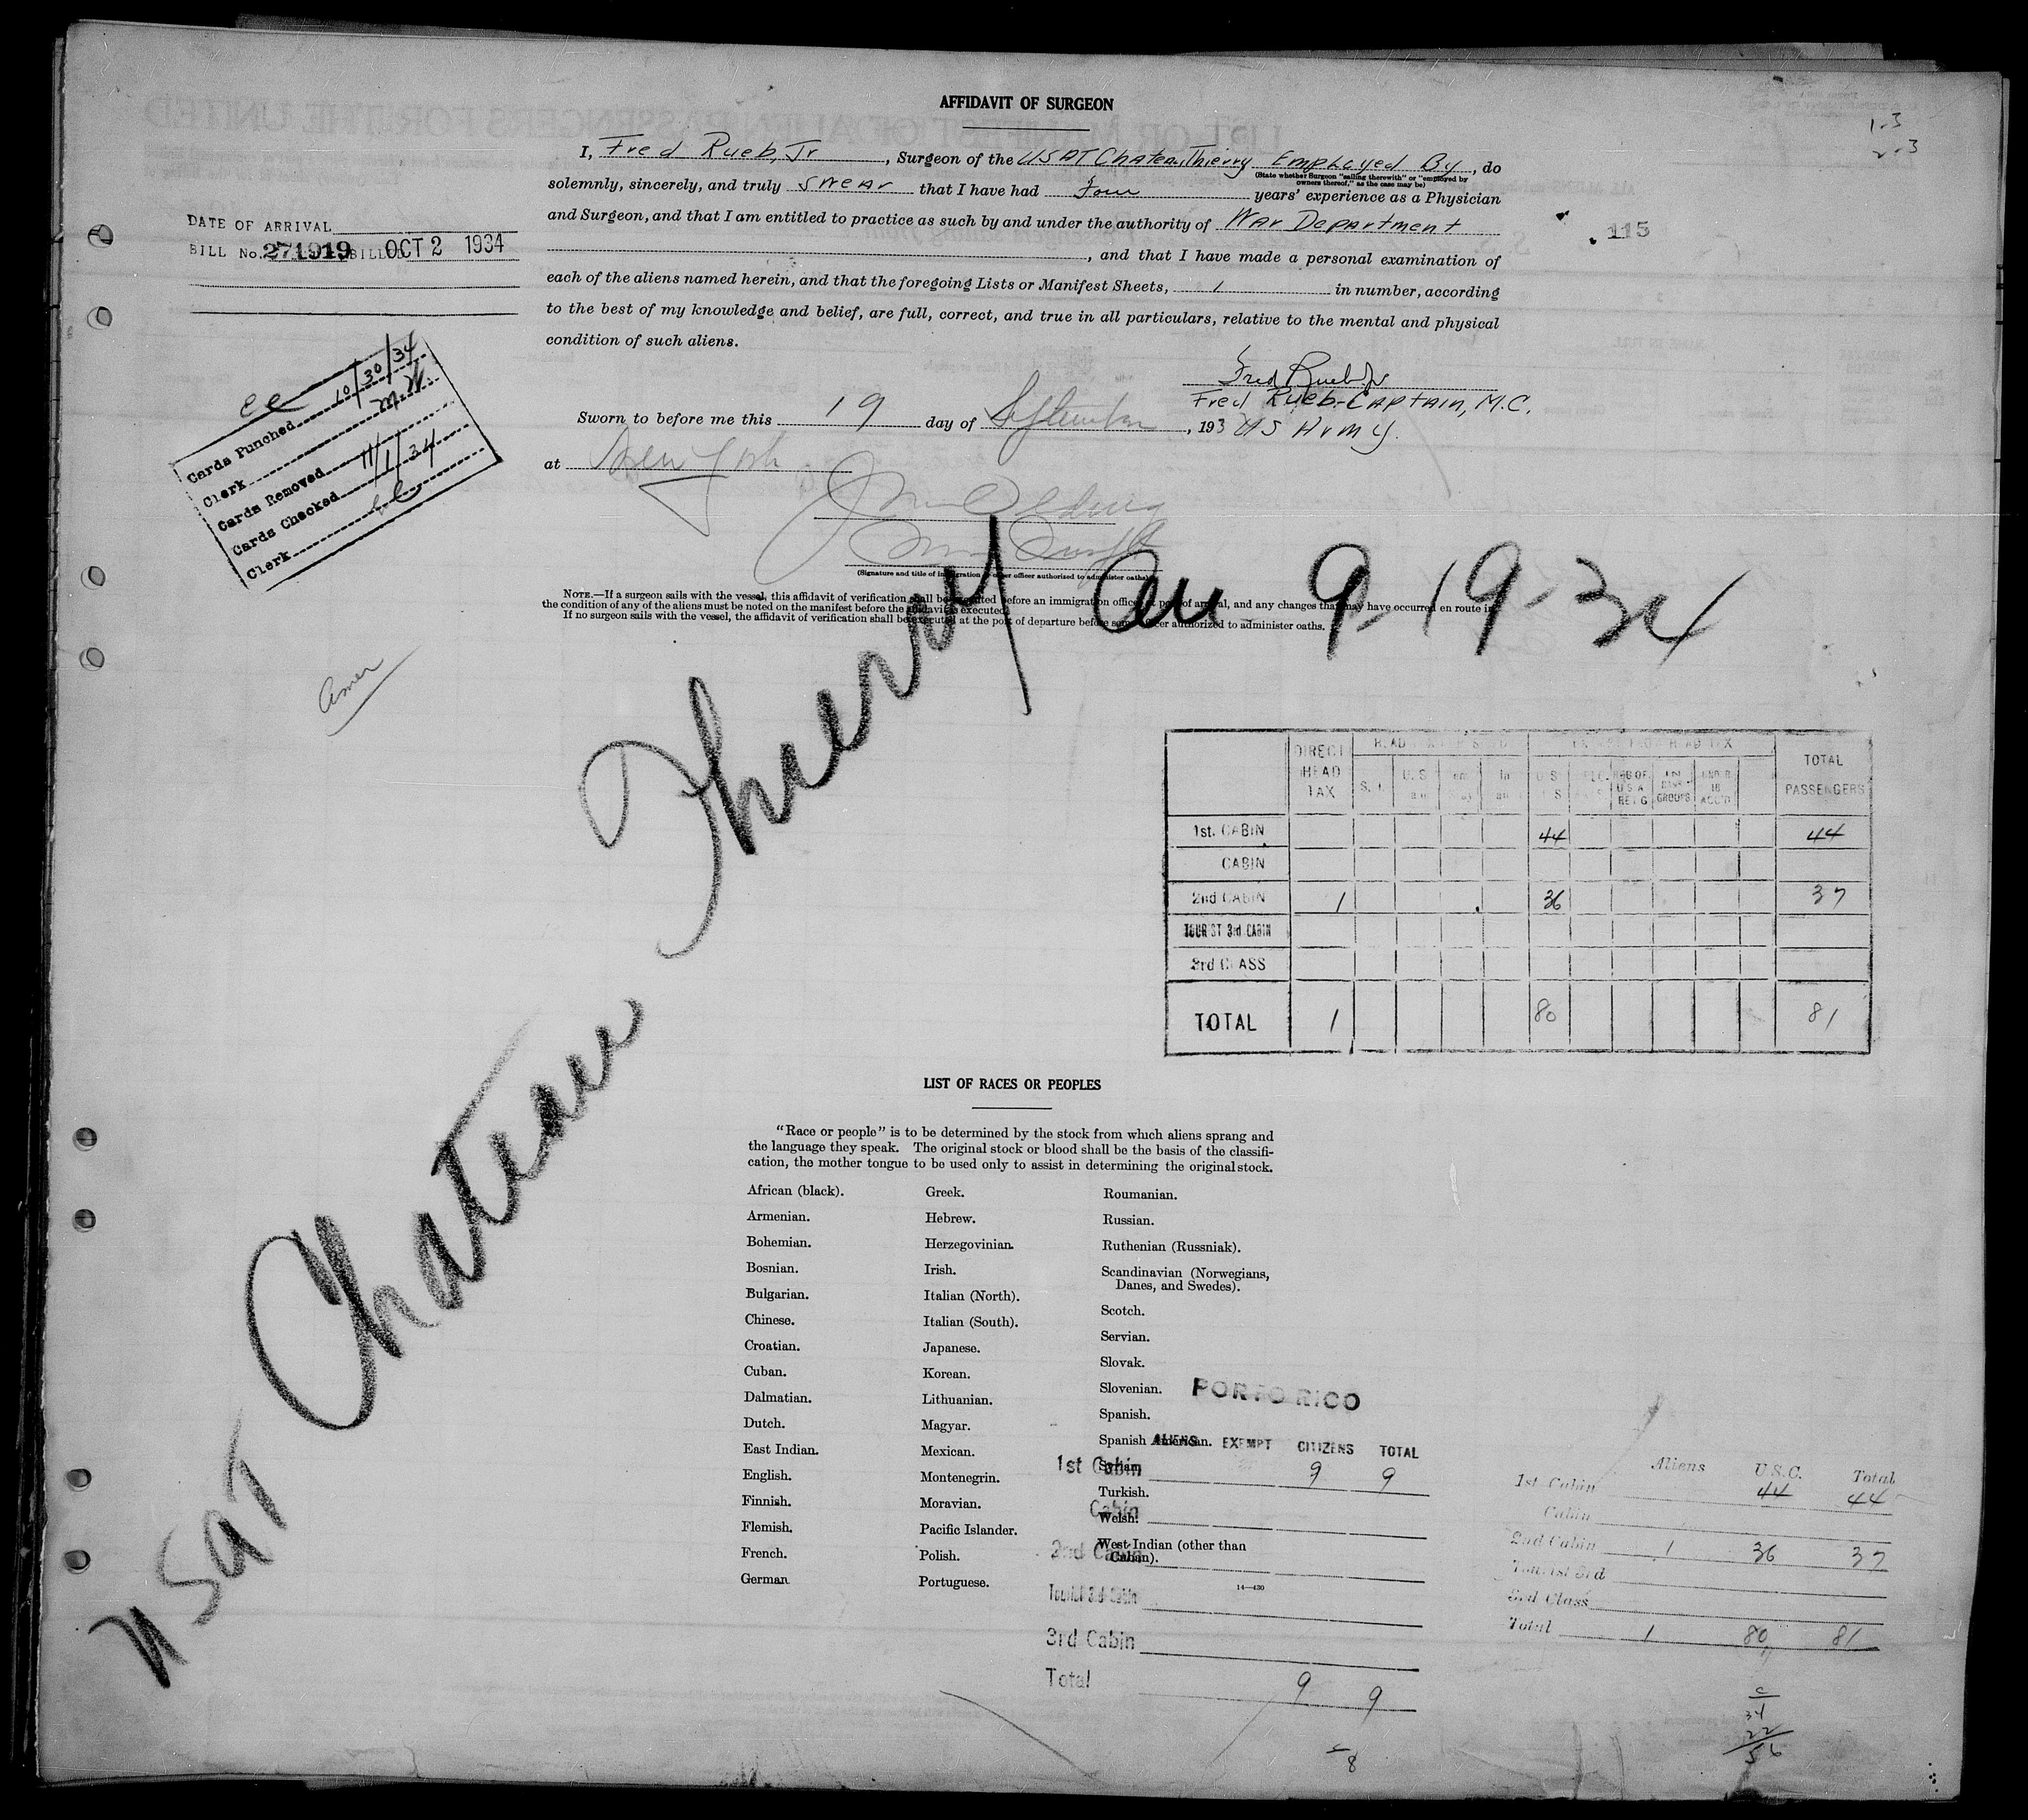 AFFIDAVIT OF SURGEON
1-3
2-3
I, Fred Rueb, Jr, Surgeon of the USAT Chateau Thierry Employed By, do
(State whether Surgeon "sailing therewith" or "employed by owners thereof," as the case may be)
solemnly, sincerely, and truly swear that I have had Four years' experience as a Physician
and Surgeon, and that I am entitled to practice as such by and under the authority of War Department
, and that I have made a personal examination of
each of the aliens named herein, and that the foregoing Lists or Manifest Sheets, 1 in number, according
to the best of my knowledge and belief, are full, correct, and true in all particulars, relative to the mental and physical
condition of such aliens.
DATE OF ARRIVAL
BILL No. 271919 BILLED OCT 2 1934
115
Fred Rueb Jr
Fred Rueb-Captain, M.C.
US Army.
Sworn to before me this 19 day of September, 193
at New York
(Signature and title of immigration or other officer authorized to administer oaths)
ee 10/30/34
Cards Punched
Clerk M.W.
Cards Removed
Cards Checked 11/1/34
Clerk ee
NOTE.—If a surgeon sails with the vessel, this affidavit of verification shall be executed before an immigration officer at port of arrival, and any changes that may have occurred en route in
the condition of any of the aliens must be noted on the manifest before the affidavit is executed.
If no surgeon sails with the vessel, the affidavit of verification shall be executed at the port of departure before some officer authorized to administer oaths.
amer
USAT Chateau Thierry arr 9-19-34
DIRECT HEAD TAX
TOTAL PASSENGERS
1st. CABIN 44 44
CABIN
2nd CABIN 1 36 37
TOURIST 3rd CABIN
3rd CLASS
TOTAL 1 80 81
LIST OF RACES OR PEOPLES
"Race or people" is to be determined by the stock from which aliens sprang and
the language they speak. The original stock or blood shall be the basis of the classifi-
cation, the mother tongue to be used only to assist in determining the original stock.
African (black).
Armenian.
Bohemian.
Bosnian.
Bulgarian.
Chinese.
Croatian.
Cuban.
Dalmatian.
Dutch.
East Indian.
English.
Finnish.
Flemish.
French.
German
Greek.
Hebrew.
Herzegovinian.
Irish.
Italian (North).
Italian (South).
Japanese.
Korean.
Lithuanian.
Magyar.
Mexican.
Montenegrin.
Moravian.
Pacific Islander.
Polish.
Portuguese.
Roumanian.
Russian.
Ruthenian (Russniak).
Scandinavian (Norwegians,
Danes, and Swedes).
Scotch.
Servian.
Slovak.
Slovenian.
Spanish.
Spanish American.
Syrian.
Turkish.
Welsh.
West Indian (other than
Cuban).
14—430
PORTO RICO
ALIENS EXEMPT CITIZENS TOTAL
1st Cabin 9 9
Cabin
2nd Cabin
Tourist 3rd Cabin
3rd Cabin
Total 9 9
8
Aliens U.S.C. Total
1st Cabin 44 44
Cabin
2nd Cabin 1 36 37
Tourist 3rd
3rd Class
Total 1 80 81
c
34
22
56